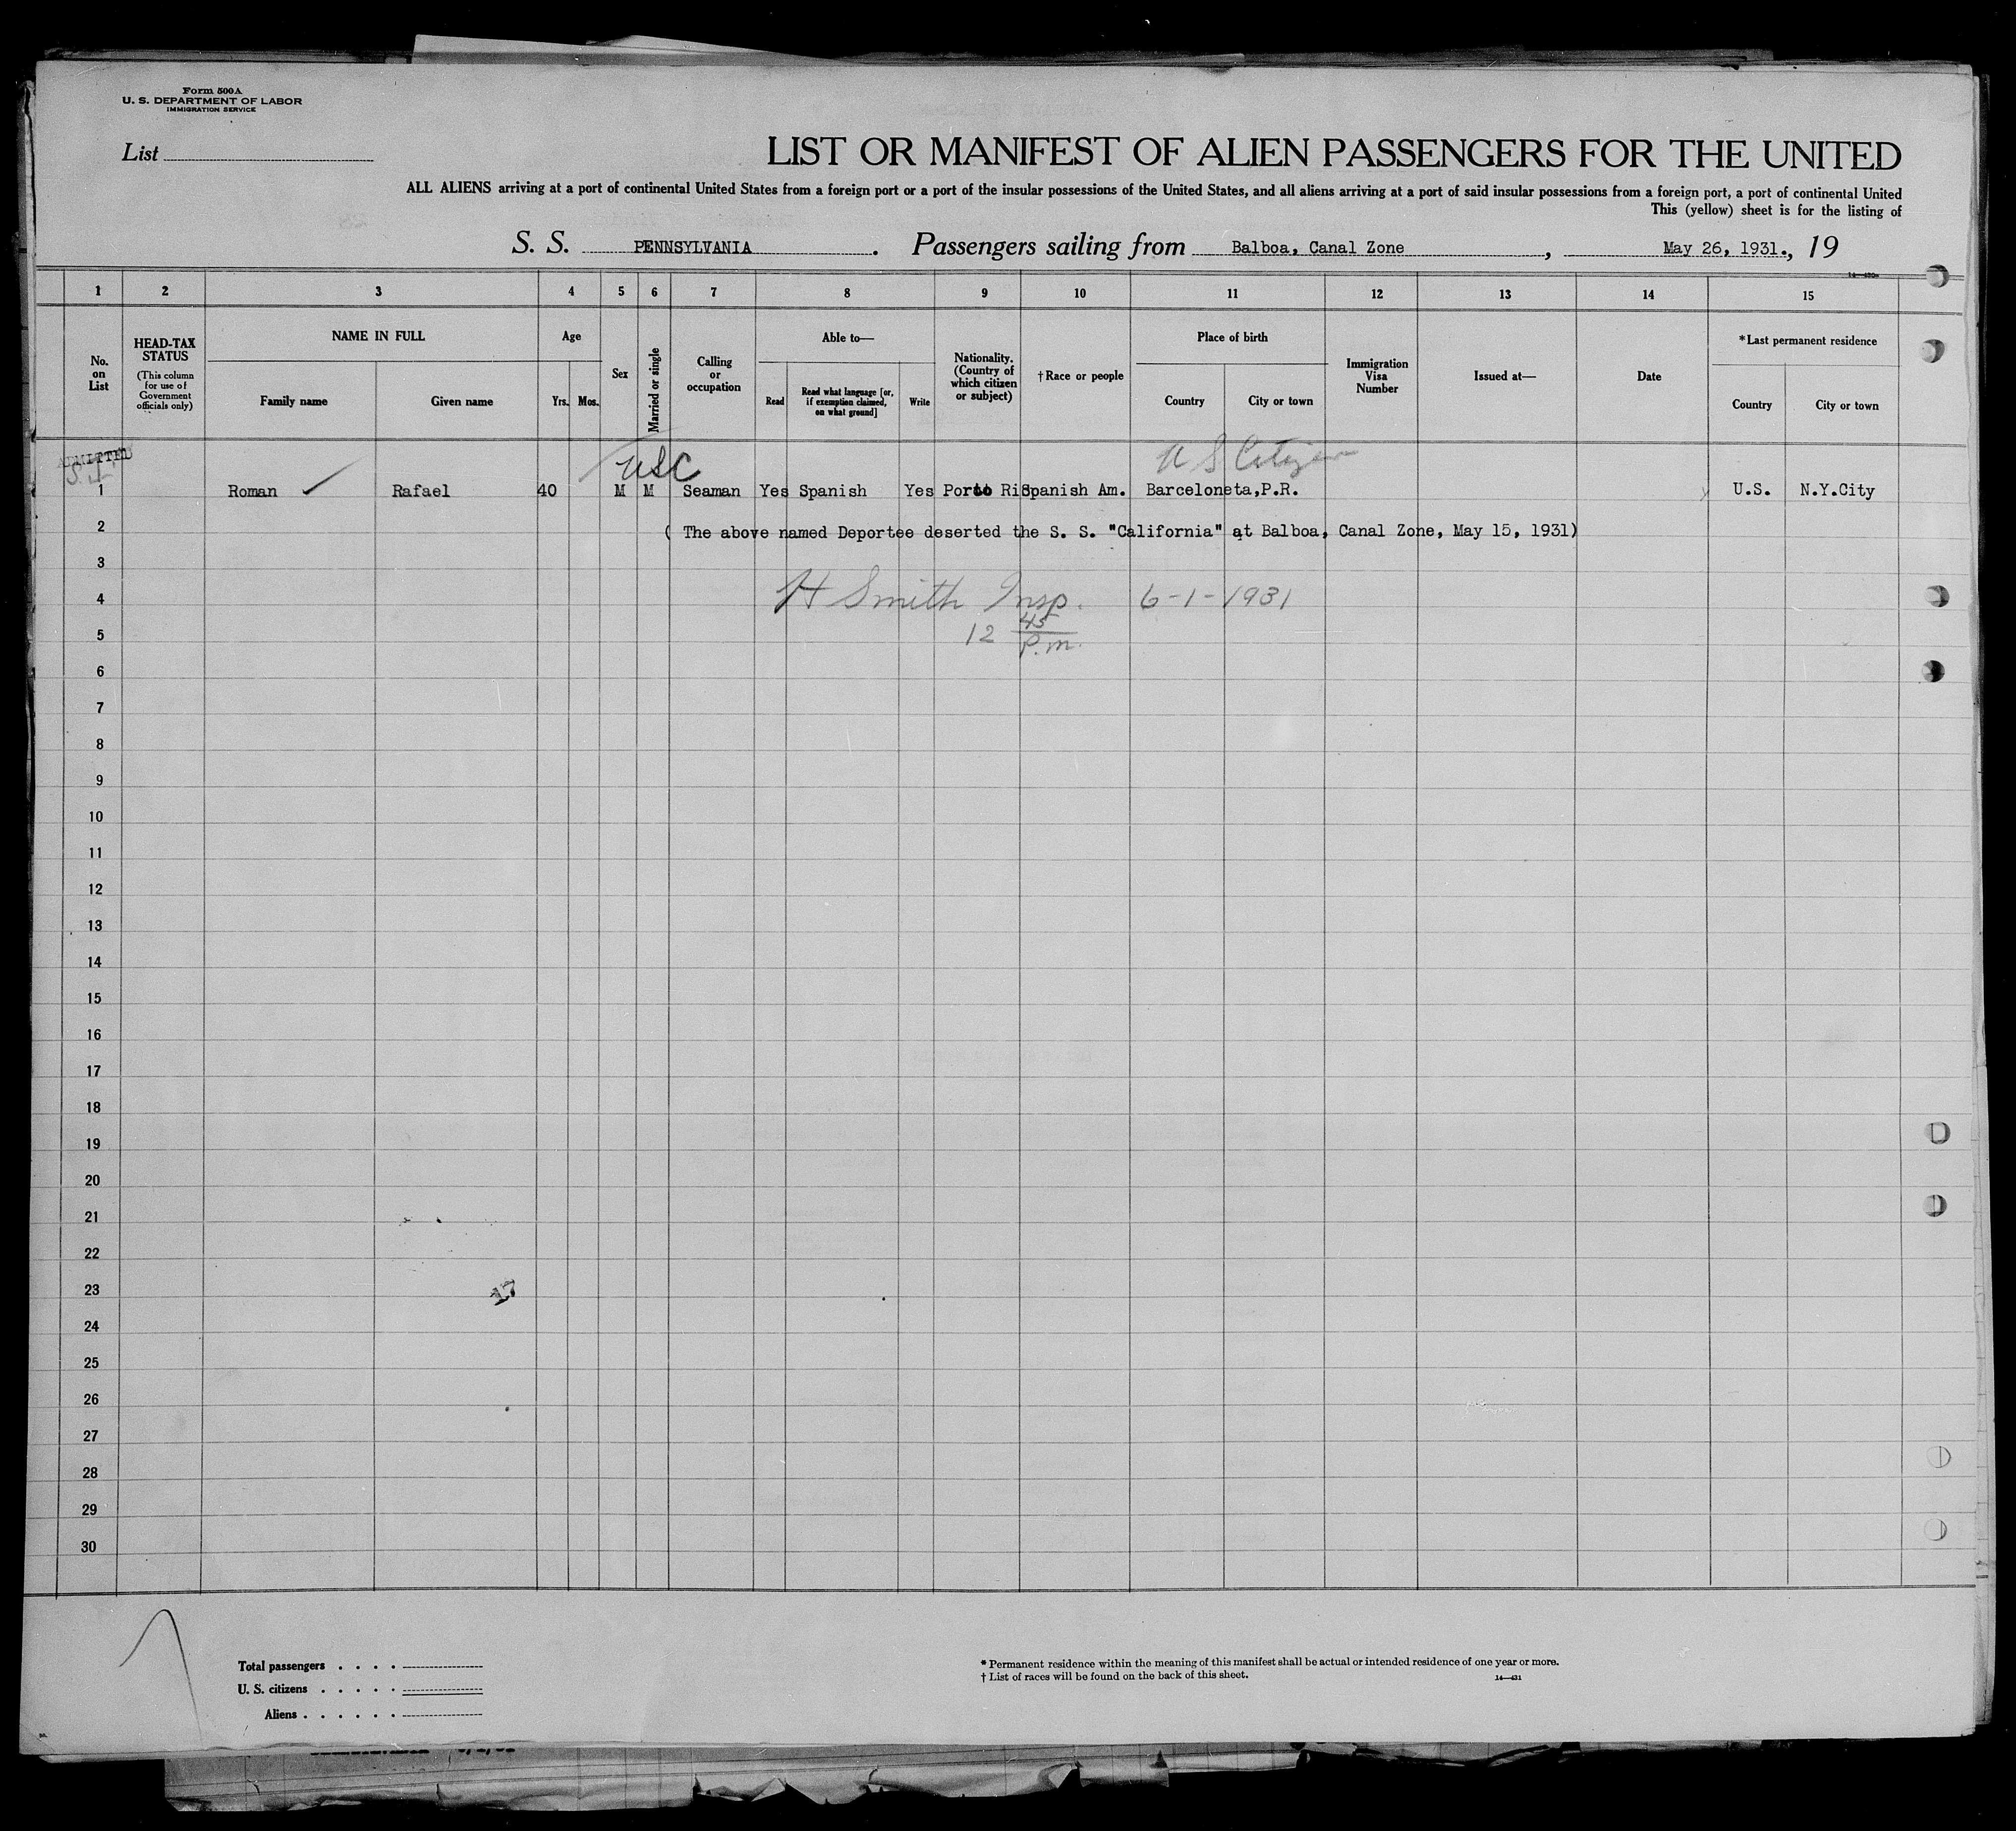 Form 500A
U. S. DEPARTMENT OF LABOR
IMMIGRATION SERVICE
List
LIST OR MANIFEST OF ALIEN PASSENGERS FOR THE UNITED
ALL ALIENS arriving at a port of continental United States from a foreign port or a port of the insular possessions of the United States, and all aliens arriving at a port of said insular possessions from a foreign port, a port of continental United
This (yellow) sheet is for the listing of
S. S. PENNSYLVANIA. Passengers sailing from Balboa, Canal Zone, May 26, 1931., 19
1 2 3 4 5 6 7 8 9 10 11 12 13 14 15
No. on List
HEAD-TAX STATUS
(This column for use of Government officials only)
NAME IN FULL
Family name
Given name
Age
Yrs. Mos.
Sex
Married or single
Calling or occupation
Able to—
Read
Read what language [or, if exemption claimed, on what ground]
Write
Nationality. (Country of which citizen or subject)
†Race or people
Place of birth
Country
City or town
Immigration Visa Number
Issued at—
Date
*Last permanent residence
Country
City or town
ADMITTED
USC
U S Citizen
1 Roman Rafael 40 M M Seaman Yes Spanish Yes Porto Ri Spanish Am. Barceloneta,P.R. U.S. N.Y.City
2 ( The above named Deportee deserted the S. S. "California" at Balboa, Canal Zone, May 15, 1931)
3
4 H Smith Insp. 6-1-1931
5 12 45 P.m.
6
7
8
9
10
11
12
13
14
15
16
17
18
19
20
21
22
23
24
25
26
27
28
29
30
Total passengers . . . .
U. S. citizens . . . . .
Aliens . . . . . .
* Permanent residence within the meaning of this manifest shall be actual or intended residence of one year or more.
† List of races will be found on the back of this sheet.
14—431